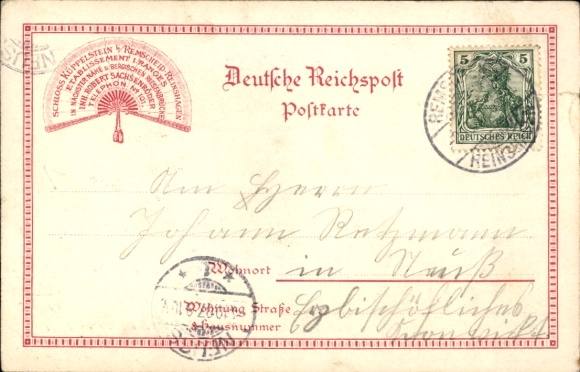 SCHLOSS KÜPPELSTEIN b/ REMSCHEID-REINSHAGEN
ETABLISSEMENT I. RANGES
IN NÄCHSTER NÄHE d. BERGISCHEN RIESENBRÜCKE
INH. ROBERT SACHSENRÖDER
TELEPHON Nº 101
Deutsche Reichspost
Postkarte
5 5
DEUTSCHES REICH
REMS
REINS
Am Herrn
Johann Retzmann
Wohnort in Neuß
Wohnung Straße Erzbischöfliches
& Hausnummer Convikt